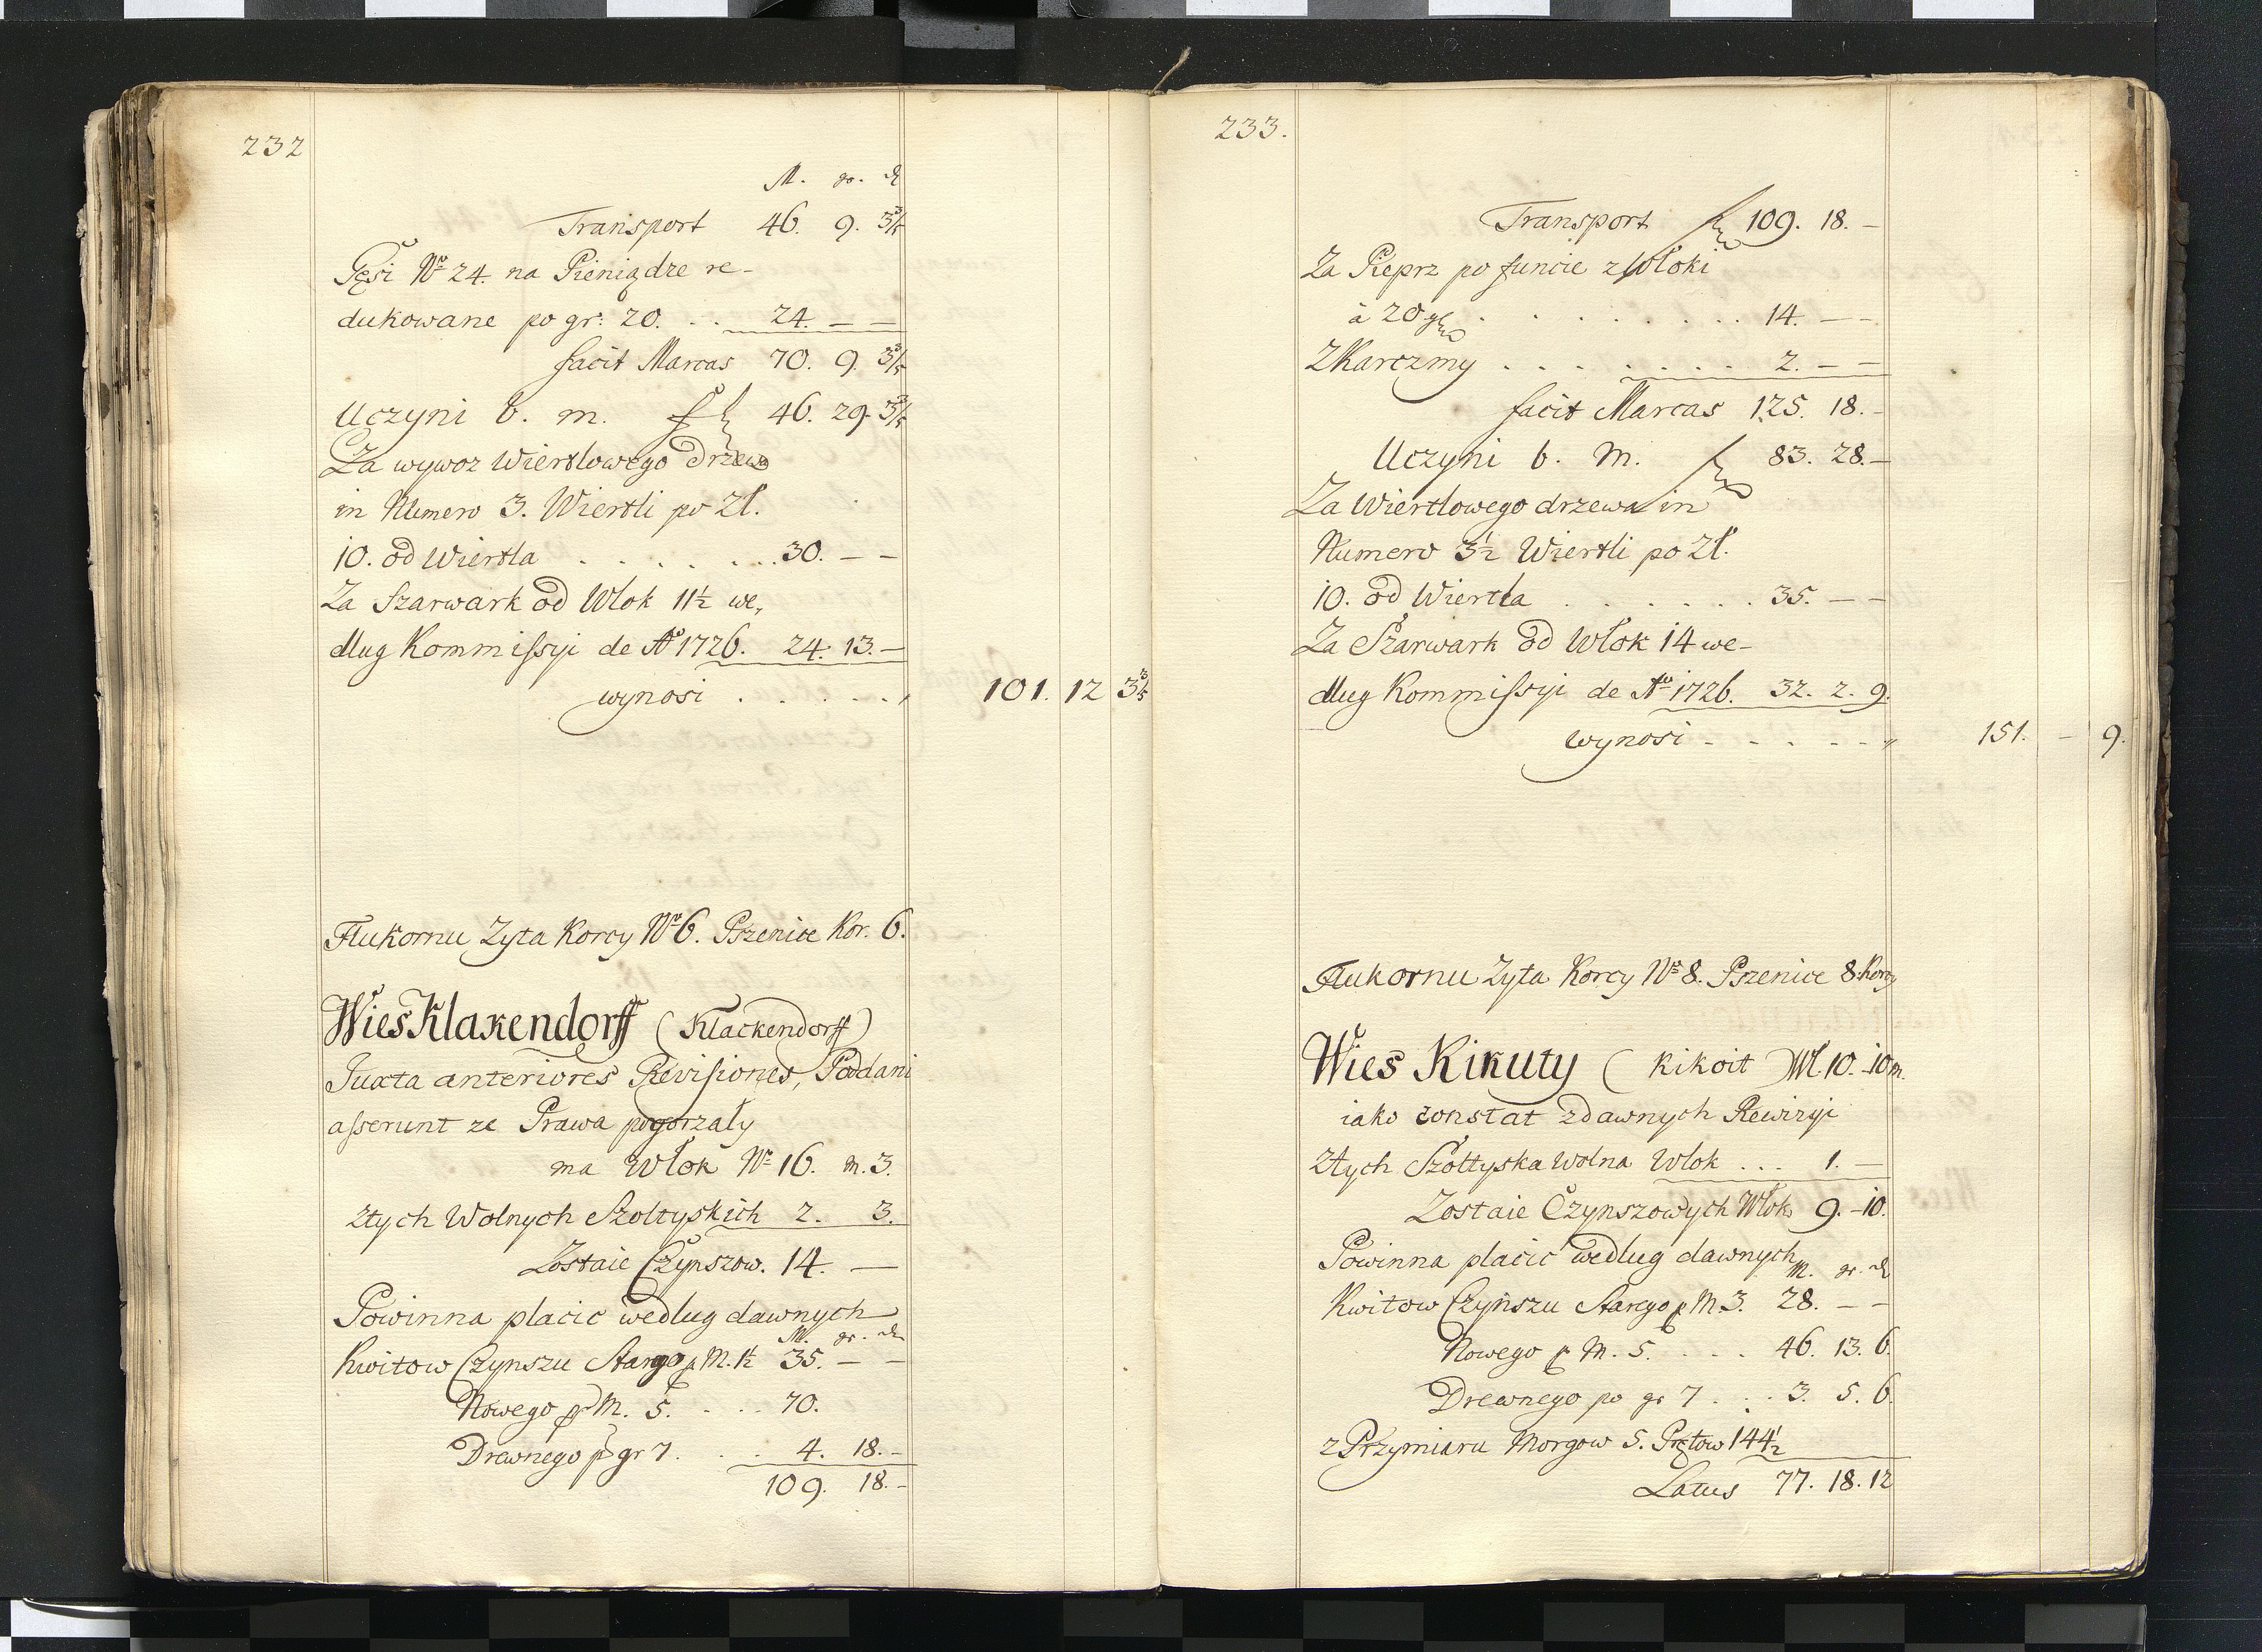 232
M. gr. ₰
Transport 46. 9. 3 3/5
Gęsi Nro 24. na Pieniądze re-
dukowane po gr: 20. . . 24. — —
facit Marcas 70. 9. 3 3/5
Uczyni b. m. f 46. 29. 3 3/5
Za wywoz Wiertlowego Drzewa
in Numero 3. Wiertli po Zł.
10. od Wiertla . . . . . . . 30. — —
Za Szarwark od Włok 11½ we,
dług Kommissyi de Ao 1726. 24. 13. —
wynosi . . . . . , 101. 12 3 3/5
Flukornu Zyta Korcy Nro 6. Pszenice Kor. 6.
Wies Klakendorff (Klackendorff)
Juxta anteriores Revisiones, Poddani
asserunt ze Prawa pogorzały
ma Włok No 16. m. 3.
Ztych Wolnych Szoltyskich 2. 3.
Zostaie Czynszow. 14. —
Powinna placic według dawnych
M. gr. ₰
Kwitow Czynszu Starego p M. ½ 35. — —
Nowego p M. 5. . . . 70.
Drewnego p gr 7. . . . 4. 18. -
109. 18. -
233.
Transport f 109. 18. —
Za Pieprz po funcie z Włoki
à 20 gr . . . . . . . . . 14. — —
Z Karczmy . . . . . . . . 2. — —
facit Marcas 125. 18. -
Uczyni b. m. f 83. 28. —
Za Wiertlowego drzewa in
Numero 3½ Wiertli po Zł.
10. od Wiertla . . . . . . . 35. — —
Za Szarwark od Włok 14 we-
dług Kommissyi de Ao 1726. 32. 2. 9.
wynosi . . . . . " 151. — 9.
Flukornu Zyta Korcy Nro 8. Pszenice 8. Korcy
Wies Kikuty (Kikoit) Wł. 10. -10 m.
iako constat zdawnych Rewizyi
Ztych Szoltyska Wolna Włok . . . 1. —
Zostaie Czynszowych Włok 9. -10.
Powinna płacic według dawnych
M. gr. ₰
Kwitow Czynszu Starego p M. 3. 28. — —
Nowego p M. 5. . . . 46. 13. 6.
Drewnego po gr 7 . . . 3. 5. 6.
z Przymiaru Morgow 5. Prętow 144½
Latus 77. 18. 12